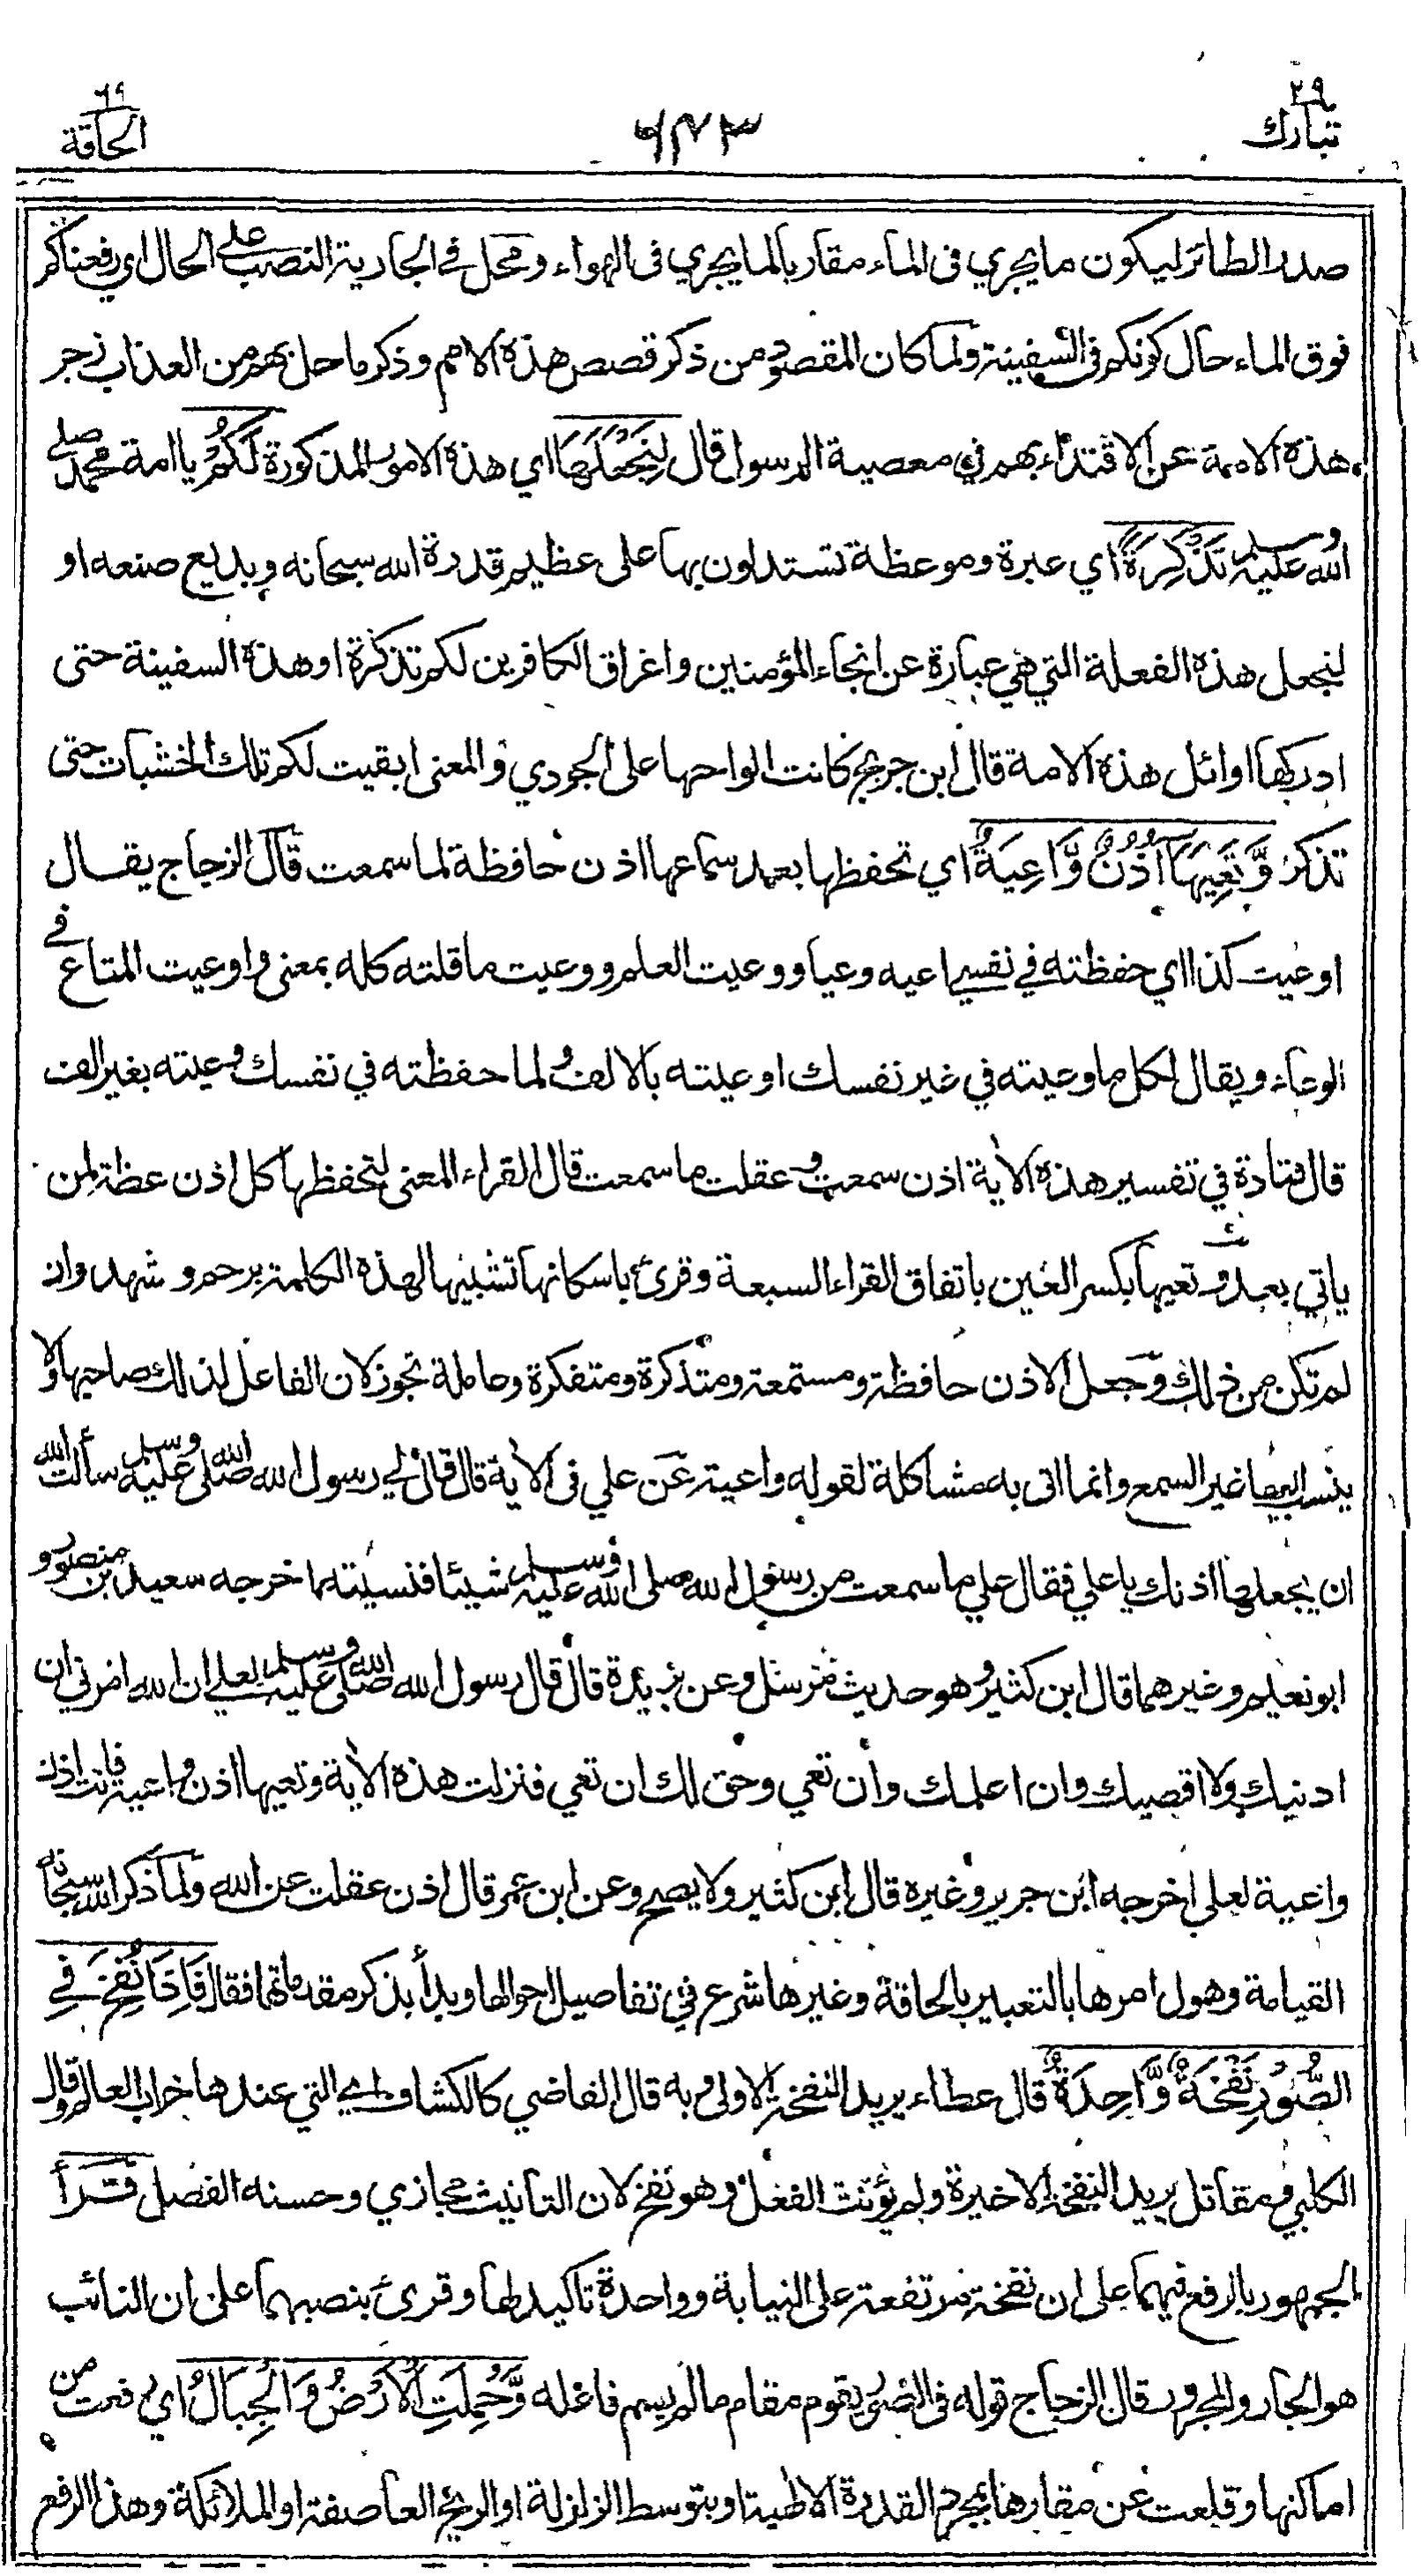 ٢٩
تبارك
٦٧٣
٦٩
الحاقة
صدر الطائر ليكون ما يجري في الماء مقاربا لما يجري في الهواء ومحل في الجارية النصب على الحال اي رفعناكم
فوق الماء حال كونكم في السفينة ولما كان المقصود من ذكر قصص هذه الامم وذكر ما حل بهم من العذاب زجر
هذه الامة عن الاقتداء بهم في معصية الرسول قال لِنَجْعَلَهَا اي هذه الامور المذكورة لَكُمْ يا امة محمد صلى
الله عليه وسلم تَذْكِرَةً اي عبرة وموعظة تستدلون بها على عظيم قدرة الله سبحانه وبديع صنعه او
لنجعل هذه الفعلة التي هي عبارة عن انجاء المؤمنين واغراق الكافرين لكم تذكرة او هذه السفينة حتى
ادركها اوائل هذه الامة قال ابن جريج كانت الواحها على الجودي والمعنى ابقيت لكم تلك الخشبات حتى
تذكر وَّتَعِيَهَا اُذُنٌ وَّاعِيَةٌ اي تحفظها بعد سماعها اذن حافظة لما سمعت قال الزجاج يقال
اوعيت كذا اي حفظته في نفسي اعيه وعيا ووعيت العلم ووعيت ما قلته كله بمعنى واوعيت المتاع في
الوعاء ويقال لكل ما وعيته في غير نفسك اوعيته بالالف ولما حفظته في نفسك وعيته بغير الف
قال قتادة في تفسير هذه الاية اذن سمعت وعقلت ما سمعت قال الفراء المعنى لتحفظها كل اذن عظة لمن
ياتي بعد وتعيها بكسر العين باتفاق القراء السبعة وقرئ باسكانها تشبيها لهذه الكلمة برحم وشهد وان
لم تكن من ذلك وجعل الاذن حافظة ومستمعة ومتذكرة ومتفكرة وحاملة تجوز لان الفاعل لذلك صاحبها ولا
ينسب اليها غير السمع وانما اتى به مشاكلة لقوله واعية عن علي في الاية قال قال لي رسول الله صلى الله عليه وسلم سألت الله
ان يجعلها اذنك يا علي فقال علي ما سمعت من رسول الله صلى الله عليه وسلم شيئا فنسيته اخرجه سعيد بن منصور و
ابو نعيم وغيرهما قال ابن كثير وهو حديث مرسل وعن بريدة قال قال رسول الله صلى الله عليه وسلم لعلي ان الله امرني ان
ادنيك ولا اقصيك وان اعلمك وان تعي وحق لك ان تعي فنزلت هذه الاية وتعيها اذن واعية فانت اذن
واعية لعلي اخرجه ابن جرير وغيره قال ابن كثير ولا يصح وعن ابن عمر قال اذن عقلت عن الله ولما ذكر الله سبحانه
القيامة وهول امرها بالتعبير بالحاقة وغيرها شرع في تفاصيل احوالها وبدأ بذكر مقدماتها فقال فَاِذَا نُفِخَ فِي
الصُّوْرِ نَفْخَةٌ وَّاحِدَةٌ قال عطاء يريد النفخة الاولى وبه قال القاضي كالكشاف اي التي عندها خراب العالم وقال
الكلبي ومقاتل يريد النفخة الاخيرة ولم يؤنث الفعل وهو نفخ لان التانيث مجازي وحسنه الفصل قرأ
الجمهور بالرفع فيهما على ان نفخة مرتفعة على النيابة وواحدة تاكيد لها وقرئ بنصبهما على ان النائب
هو الجار والمجرور قال الزجاج قوله في الصور يقوم مقام ما لم يسم فاعله وَّحُمِلَتِ الْاَرْضُ وَالْجِبَالُ اي رفعت من
اماكنها وقلعت عن مقارها بمجرد القدرة الالهية او بتوسط الزلزلة او الريح العاصفة او الملائكة وهذا الرفع